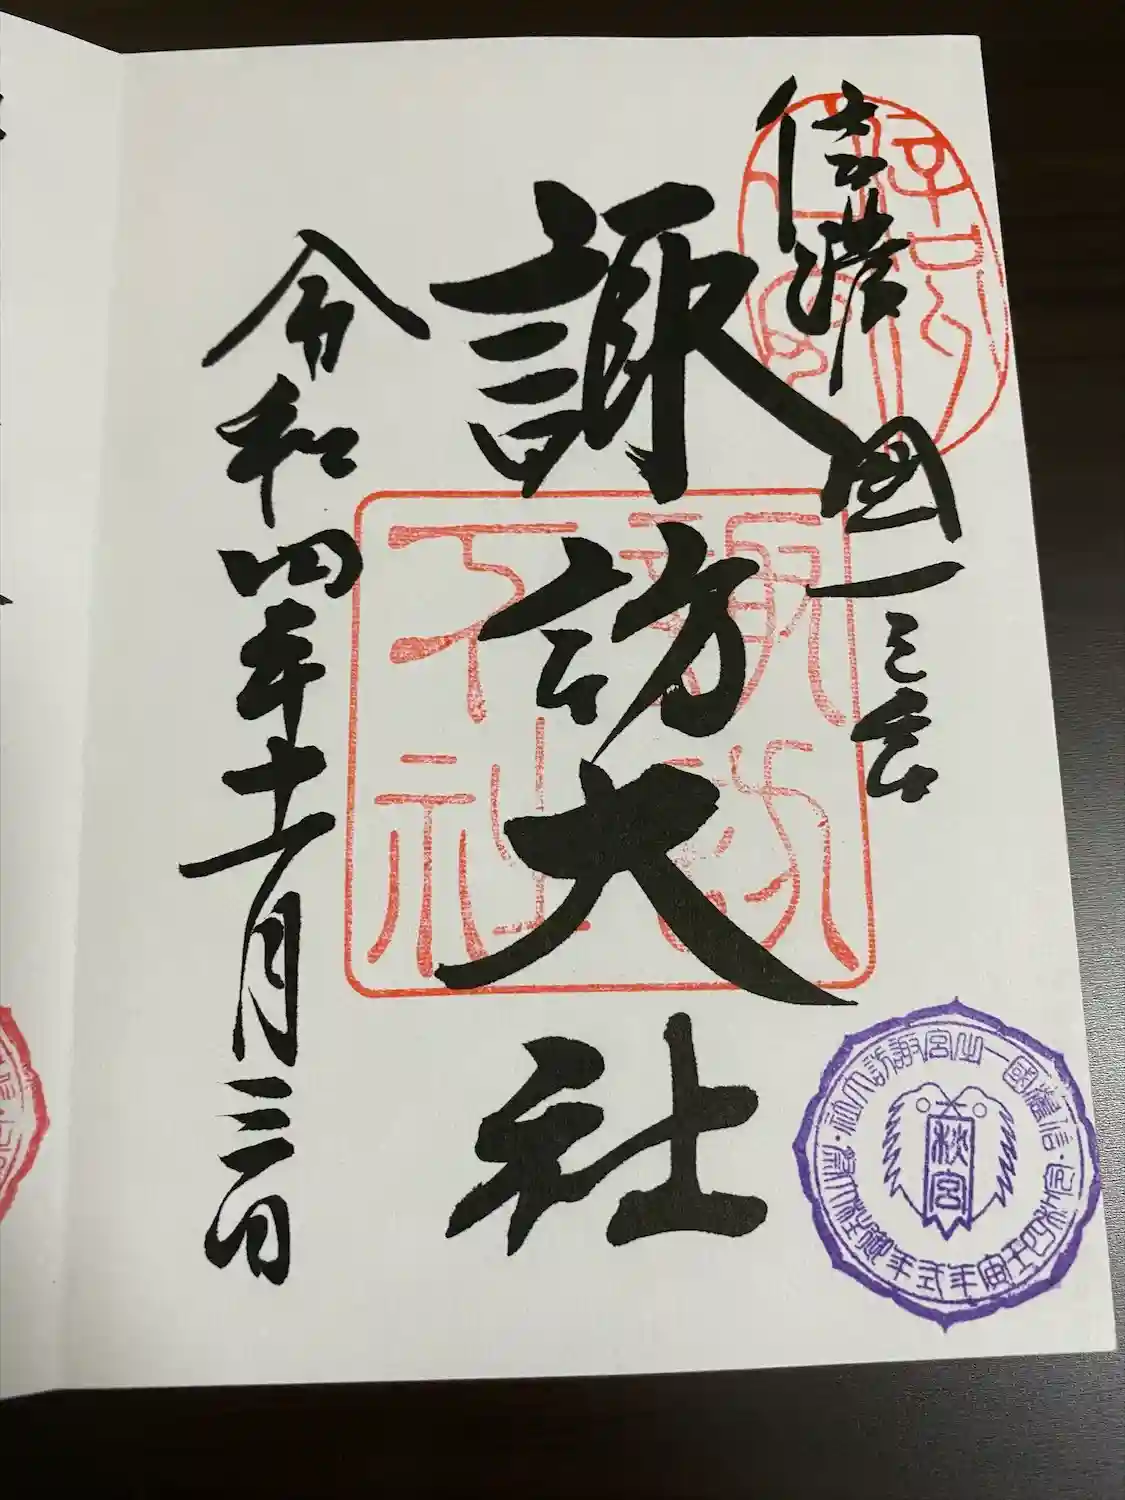 信濃國一之宮
諏訪大社
令和四年十一月三日
諏訪下社
信濃國一之宮諏訪大社
秋宮
令和四壬寅年式年御柱